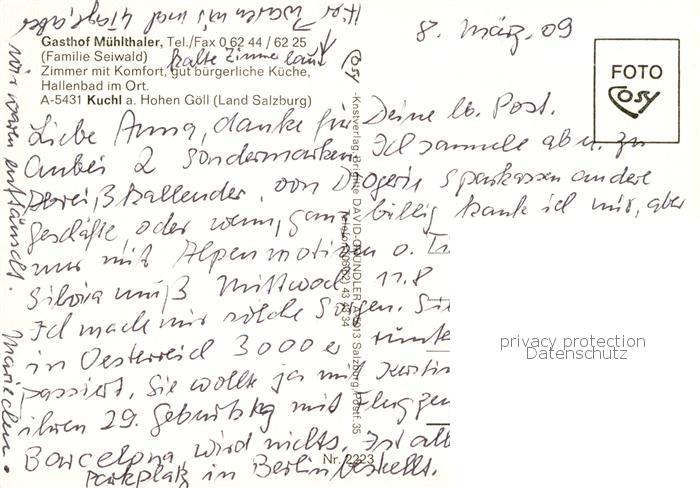 8. März 09
Hier waren wir mal 4 Tage, aber
kalte Zimmer laut
wir waren enttäuscht.
Gasthof Mühlthaler, Tel./Fax 0 62 44 / 62 25
(Familie Seiwald)
Zimmer mit Komfort, gut bürgerliche Küche,
Hallenbad im Ort.
A-5431 Kuchl a. Hohen Göll (Land Salzburg)
FOTO
Cosy
Cosy -Kunstverlag, Brigitte DAVID-GRÜNDLER A-5013 Salzburg, Postf. 35
Telefon (0662) 43 43 34
Liebe Anna, danke für Deine lb. Post.
Anbei 2 Sondermarken. Ich sammle ab u. zu
Abreißkallender, von Drogerie Sparkassen andere
Geschäfte oder wenn, ganz billig kauf ich mir, aber
nur mit Alpenmotiven o.
Silvia muß Mittwoch 11.8
Ich mach mir solche Sorgen. Sie
in Oesterreich 3000 er
passiert. Sie wollte ja mit
ihren 29. Geburtstg mit
Barcelona, wird nichts. Ist
Parkplatz in Berlin bestellt.
Mariechen.
Nr. 2223
privacy protection
Datenschutz